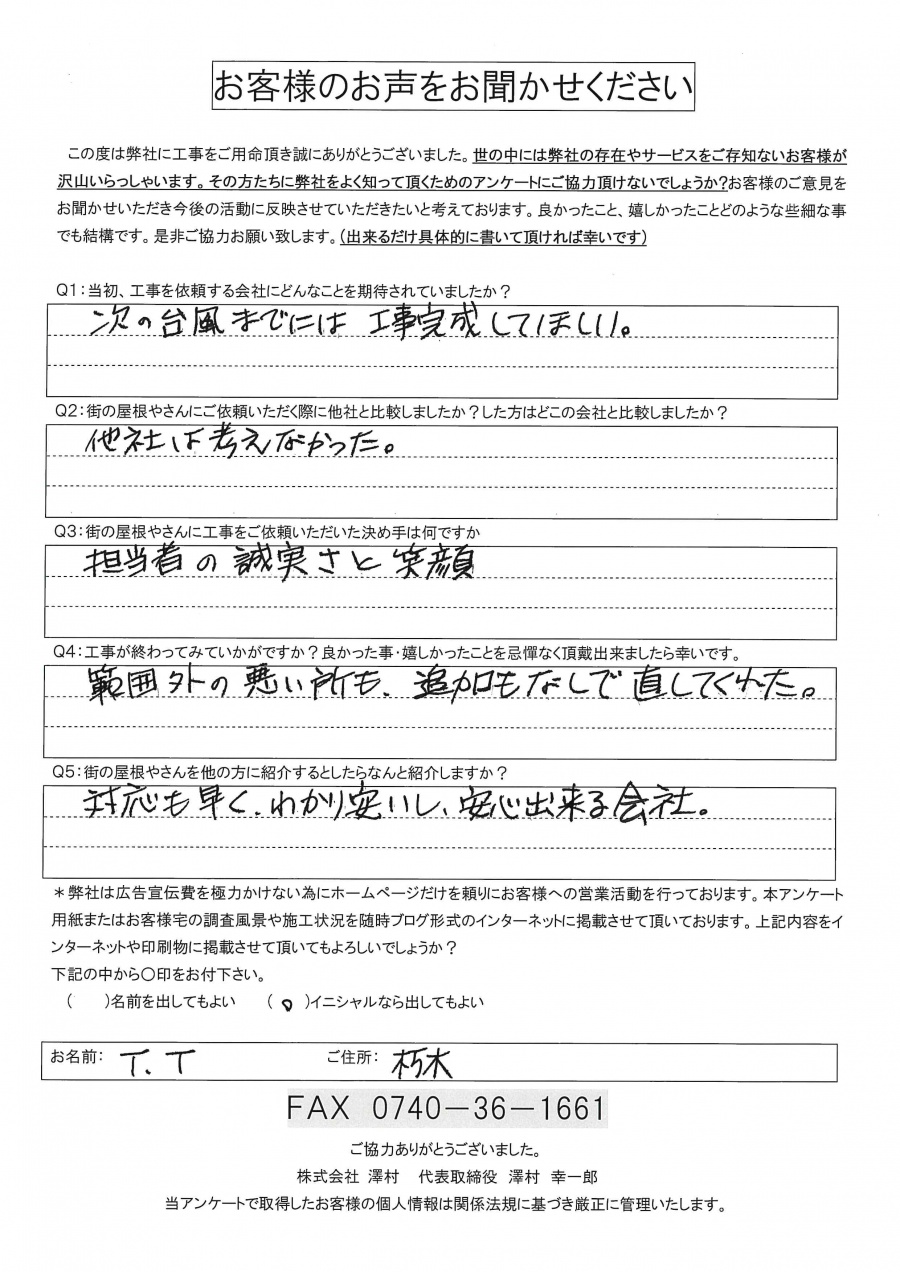 お客様のお声をお聞かせください
この度は弊社に工事をご用命頂き誠にありがとうございました。世の中には弊社の存在やサービスをご存知ないお客様が
沢山いらっしゃいます。その方たちに弊社をよく知って頂くためのアンケートにご協力頂けないでしょうか?お客様のご意見を
お聞かせいただき今後の活動に反映させていただきたいと考えております。良かったこと、嬉しかったことどのような些細な事
でも結構です。是非ご協力お願い致します。(出来るだけ具体的に書いて頂ければ幸いです)
Q1:当初、工事を依頼する会社にどんなことを期待されていましたか?
次の台風までには工事完成してほしい。
Q2:街の屋根やさんにご依頼いただく際に他社と比較しましたか?した方はどこの会社と比較しましたか?
他社は考えなかった。
Q3:街の屋根やさんに工事をご依頼いただいた決め手は何ですか
担当者の誠実さと笑顔
Q4:工事が終わってみていかがですか?良かった事・嬉しかったことを忌憚なく頂戴出来ましたら幸いです。
範囲外の悪い所も、追加もなしで直してくれた。
Q5:街の屋根やさんを他の方に紹介するとしたらなんと紹介しますか?
対応も早く、わかり安いし、安心出来る会社。
*弊社は広告宣伝費を極力かけない為にホームページだけを頼りにお客様への営業活動を行っております。本アンケート
用紙またはお客様宅の調査風景や施工状況を随時ブログ形式のインターネットに掲載させて頂いております。上記内容をイ
ンターネットや印刷物に掲載させて頂いてもよろしいでしょうか?
下記の中から〇印をお付下さい。
( )名前を出してもよい (o)イニシャルなら出してもよい
お名前: T.T ご住所: 朽木
FAX 0740-36-1661
ご協力ありがとうございました。
株式会社 澤村 代表取締役 澤村 幸一郎
当アンケートで取得したお客様の個人情報は関係法規に基づき厳正に管理いたします。